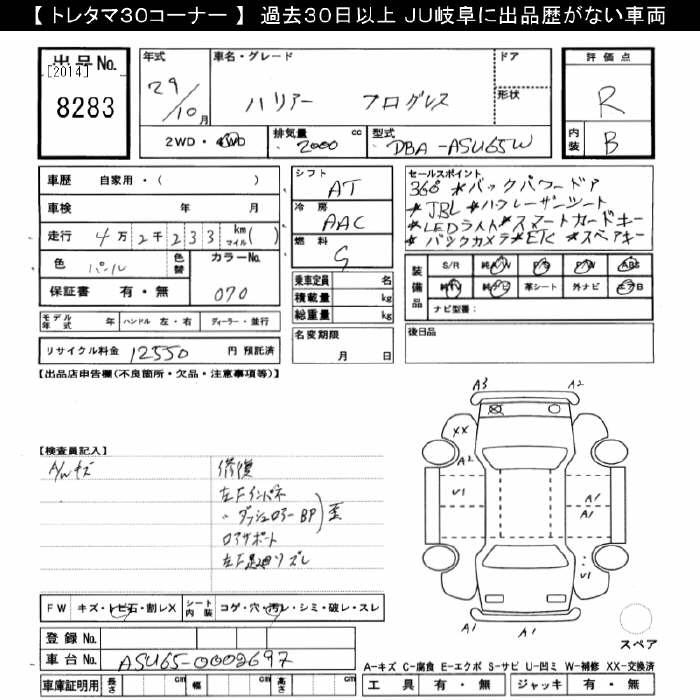 【 トレタマ30コーナー 】 過去30日以上 JU岐阜に出品歴がない車両
出 品 No.
[2014]
8283
年式 29/10月
車名・グレード ハリアー プログレス
ドア
形状
評 価 点
R
内装 B
2WD・4WD
排気量 2000 cc
型式 DBA-ASU65W
車歴 自家用・( )
車検 年 月
走行 4万2千233 kmマイル( )
色 パール 色替
カラーNo. 070
保証書 有・無
シフト AT
冷房 AAC
燃料 G
乗車定員 名
積載量 kg
総重量 kg
名変期限 月 日
セールスポイント
360° *バックパワードア
*JBL *ハーフレザーシート
*LEDライト*スマートカードキー
*バックカメラ*ETC *スペアキー
装備品
S/R 純A/W P/S P/W ABS
純TV 純ナビ 革シート 外ナビ エアB
ナビ型番:
モデル年式 年 ハンドル 左・右 ディーラー・並行
リサイクル料金 12550 円 預託済
後日品
【出品店申告欄(不良箇所・欠品・注意事項等)】
【検査員記入】
A/Wキズ
修復
左Fインパネ
〃 ダッシュロアーBP)歪
ロアサポート
左F足廻リズレ
A3
A2
XX
A2
U1
A1
A1
U1
A1
A1
スペア
FW キズ・トビ石・割レX シート内装 コゲ・穴・汚レ・シミ・破レ・スレ
登 録 No.
車 台 No. ASU65-0002697
車庫証明用 長さ cm 幅 cm 高さ cm
A-キズ C-腐食 E-エクボ S-サビ U-凹ミ W-補修 XX-交換済
工 具 有・無 ジャッキ 有・無